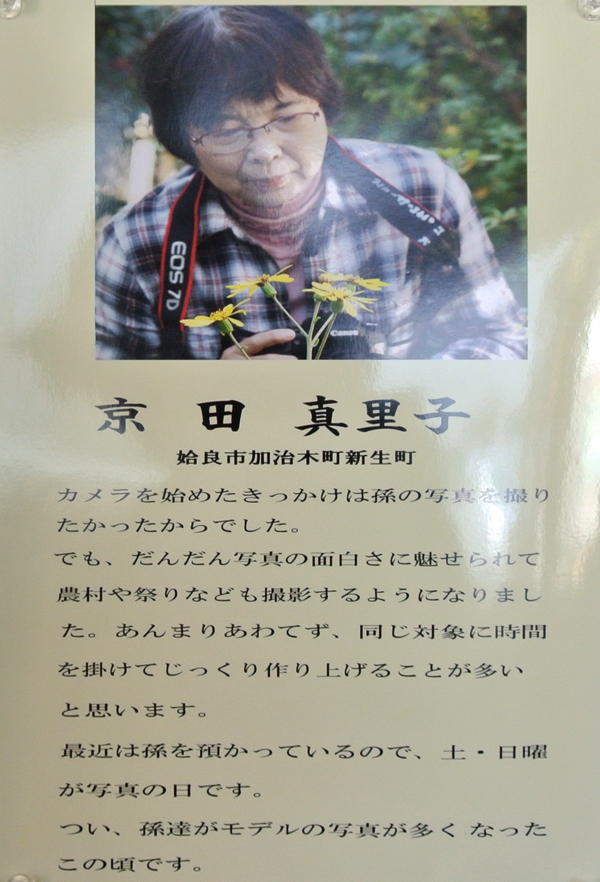 EOS 7D
Canon
京 田 真里子
姶良市加治木町新生町
カメラを始めたきっかけは孫の写真を撮り
たかったからでした。
でも、だんだん写真の面白さに魅せられて
農村や祭りなども撮影するようになりまし
た。あんまりあわてず、同じ対象に時間
を掛けてじっくり作り上げることが多い
と思います。
最近は孫を預かっているので、土・日曜
が写真の日です。
つい、孫達がモデルの写真が多く なった
この頃です。